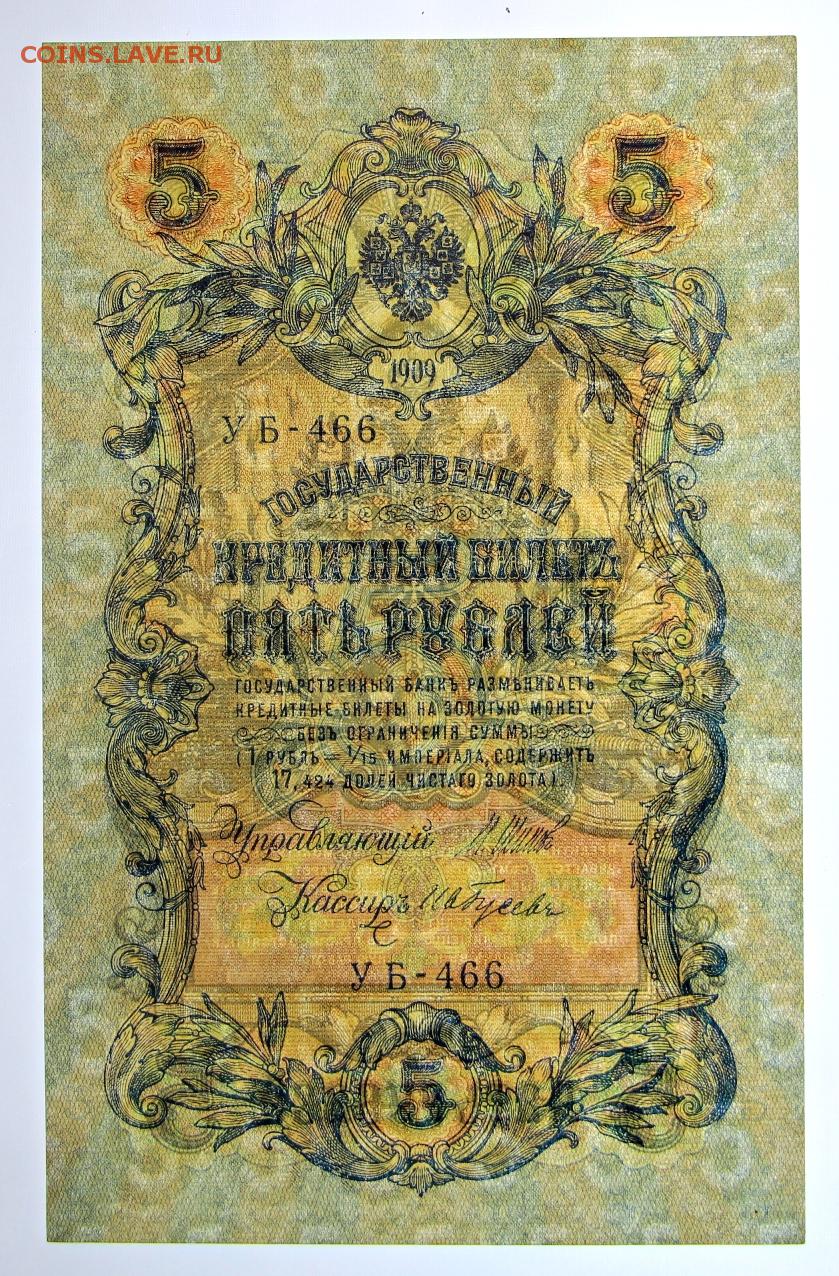 COINS.LAVE.RU
5 5
1909
УБ-466
ГОСУДАРСТВЕННЫЙ
КРЕДИТНЫЙ БИЛЕТЪ
ПЯТЬ РУБЛЕЙ
ГОСУДАРСТВЕННЫЙ БАНКЪ РАЗМѢНИВАЕТЪ
КРЕДИТНЫЕ БИЛЕТЫ НА ЗОЛОТУЮ МОНЕТУ
БЕЗЪ ОГРАНИЧЕНІЯ СУММЫ
(1 РУБЛЬ = 1/15 ИМПЕРІАЛА, СОДЕРЖИТЪ
17,424 ДОЛЕЙ ЧИСТАГО ЗОЛОТА).
Управляющій И. Шипов
Кассиръ Бусевъ
УБ-466
5